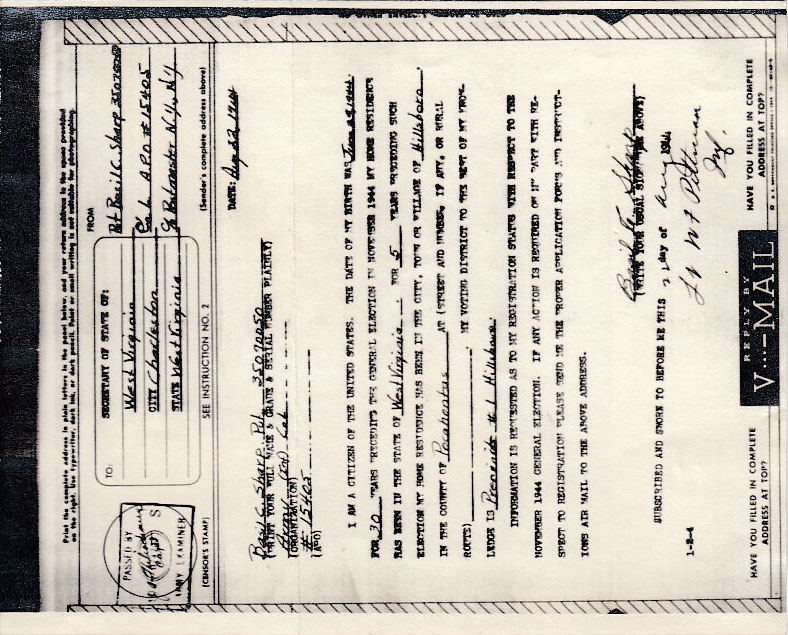 Print the complete address in plain letters in the panel below, and your return address in the space provided
on the right. Use typewriter, dark ink, or dark pencil. Faint or small writing is not suitable for photographing.
TO:
SECRETARY OF STATE OF:
West Virginia
CITY Charleston
STATE West Virginia
SEE INSTRUCTION NO. 2
FROM
Pvt Basil C. Sharp 35070050
Co. L A.P.O. # 15405
% Postmaster N.Y., N.Y.
(Sender's complete address above)
PASSED BY
S
ARMY EXAMINER
(CENSOR'S STAMP)
DATE: Aug 22, 1944
Basil C. Sharp Pvt. 35070050
(PRINT YOUR FULL NAME & GRADE & SERIAL NUMBER PLAINLY)
Army
(ORGANIZATION)
# 15405
(APO)
I AM A CITIZEN OF THE UNITED STATES. THE DATE OF MY BIRTH WAS
FOR 30 YEARS PRECEDING THE GENERAL ELECTION IN NOVEMBER 1944 MY HOME RESIDENCE
HAS BEEN IN THE STATE OF West Virginia; FOR 5 YEARS PRECEDING SUCH
ELECTION MY HOME RESIDENCE HAS BEEN IN THE CITY, TOWN OR VILLAGE OF Hillsboro,
IN THE COUNTY OF Pocahontas AT (STREET AND NUMBER, IF ANY, OR RURAL
ROUTE) MY VOTING DISTRICT TO THE BEST OF MY KNOW-
LEDGE IS Precinct # 1 Hillsboro.
INFORMATION IS REQUESTED AS TO MY REGISTRATION STATUS WITH RESPECT TO THE
NOVEMBER 1944 GENERAL ELECTION. IF ANY ACTION IS REQUIRED ON MY PART WITH RE-
SPECT TO REGISTRATION PLEASE SEND ME THE PROPER APPLICATION FORMS AND INSTRUCT-
IONS AIR MAIL TO THE ABOVE ADDRESS.
Basil C Sharp
(WRITE YOUR USUAL SIGNATURE ABOVE)
SUBSCRIBED AND SWORN TO BEFORE ME THIS 21 day of Aug 1944
Lt Wt Pittman
Inf.
1-2-4
HAVE YOU FILLED IN COMPLETE
ADDRESS AT TOP?
REPLY BY
V···-MAIL
HAVE YOU FILLED IN COMPLETE
ADDRESS AT TOP?